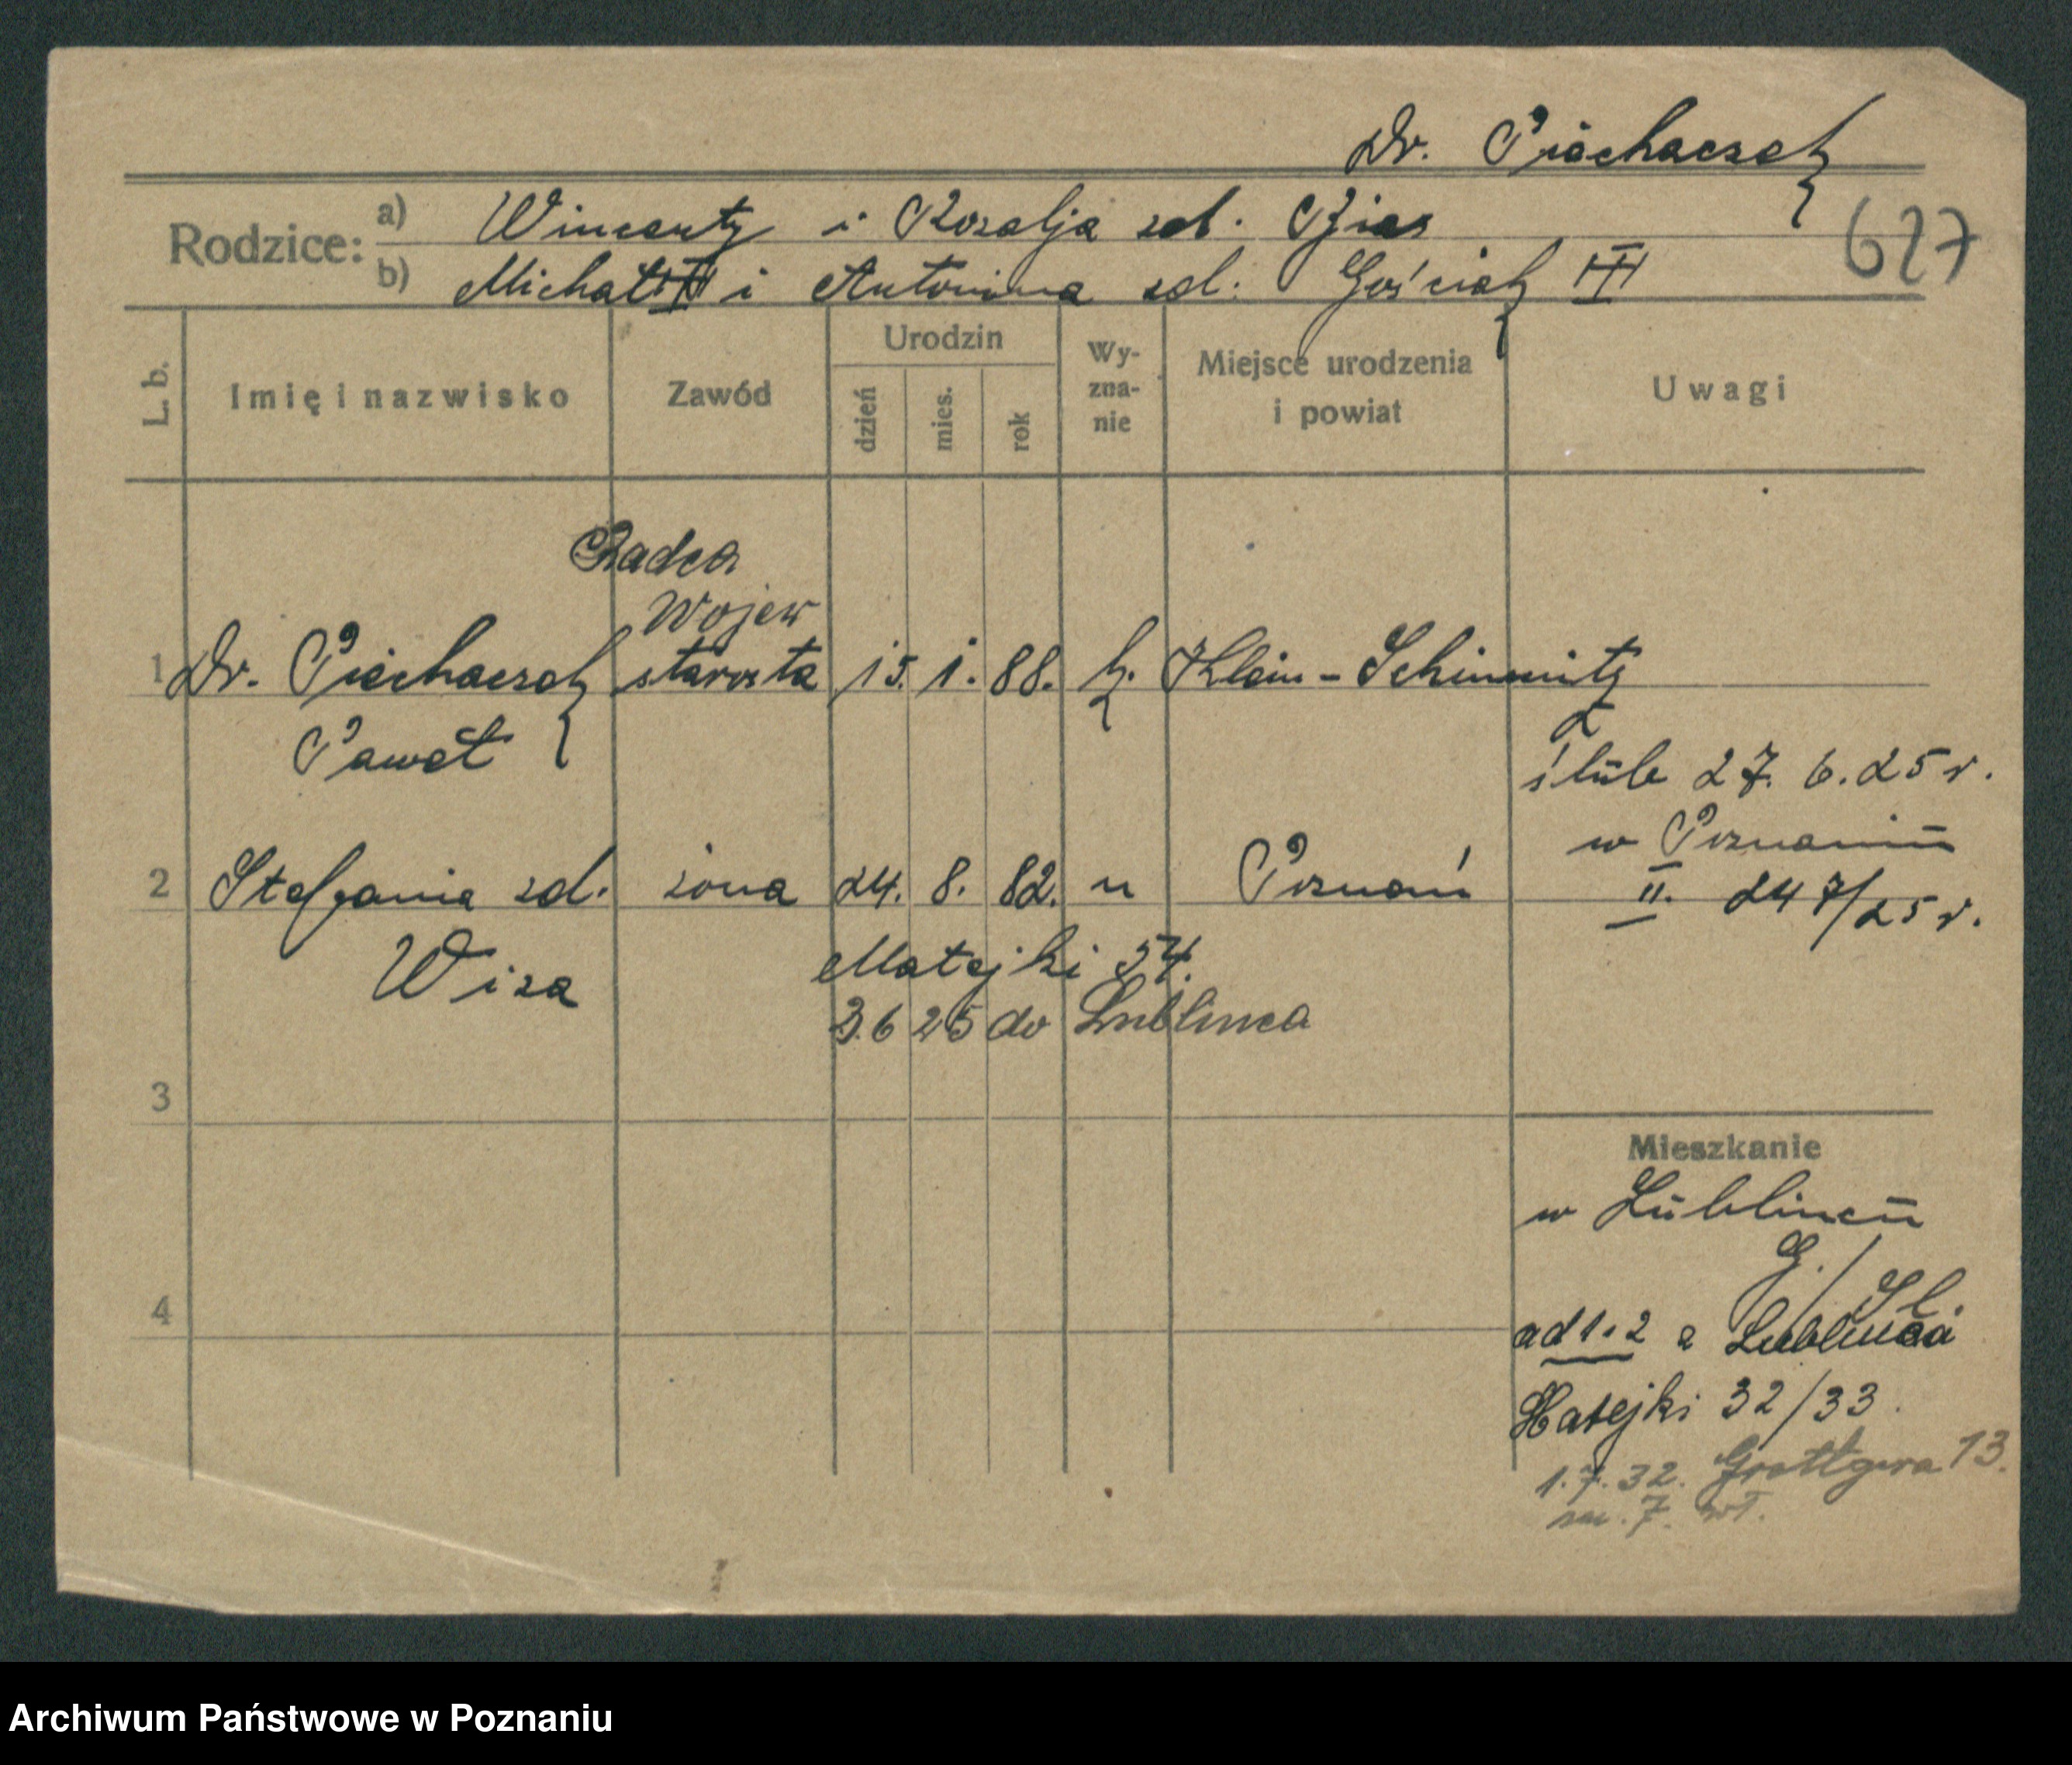 Dr. Piechaczek
Rodzice:
a) Wincenty i Rozalja zd. Bias
b) Michał i Antonina zd. Gościak
627
L. b.
Imię i nazwisko
Zawód
Urodzin
dzień
mies.
rok
Wy-
zna-
nie
Miejsce urodzenia
i powiat
Uwagi
Radca
Wojew
1 Dr. Piechaczek starosta 15. 1. 88. k. Klein-Schimnitz
Paweł
ślub 27. 6. 25 r.
w Poznaniu
2 Stefania zd. żona 24. 8. 82. " Poznań
II. 247/25 r.
Wiza
Matejki 54.
3. 6 25 do Lublinca
3
Mieszkanie
w Lublincu
G./Śl.
4
ad 1. 2 z Lublinca
Matejki 32/33.
1. 7. 32. Grottgera 13.
m. 7. wł.
Archiwum Państwowe w Poznaniu